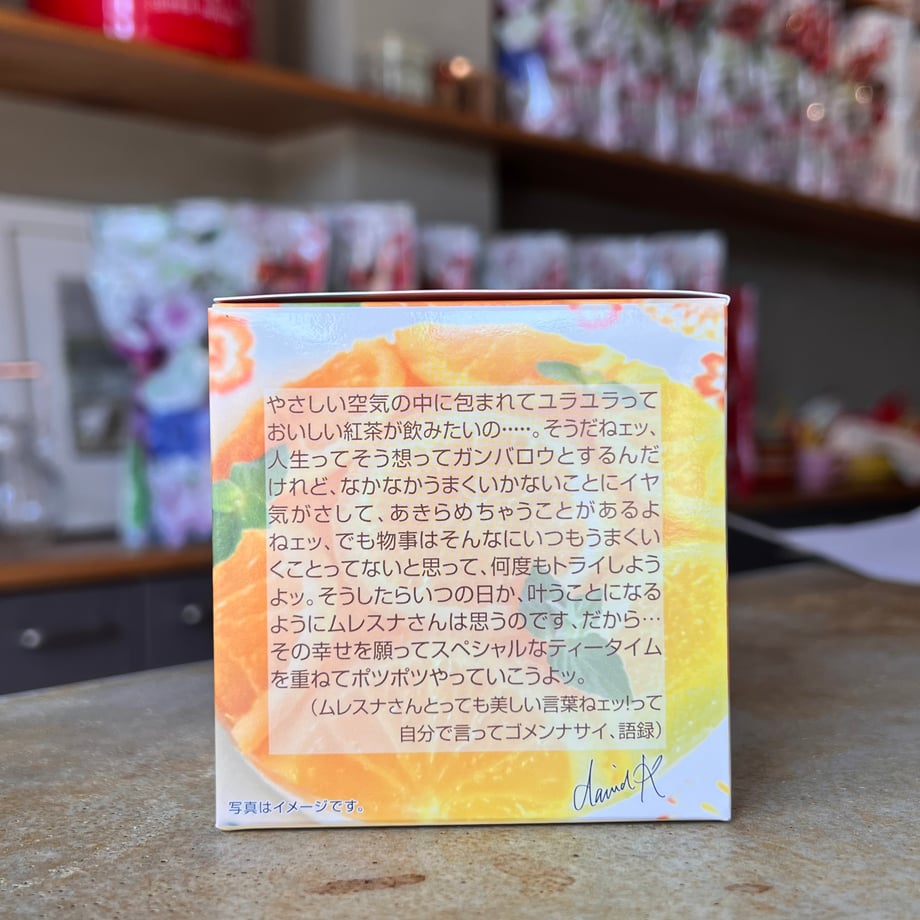 やさしい空気の中に包まれてユラユラって
おいしい紅茶が飲みたいの……。そうだねェッ、
人生ってそう想ってガンバロウとするんだ
けれど、なかなかうまくいかないことにイヤ
気がさして、あきらめちゃうことがあるよ
ねェッ、でも物事はそんなにいつもうまくい
くことってないと思って、何度もトライしよう
よッ。そうしたらいつの日か、叶うことになる
ようにムレスナさんは思うのです、だから…
その幸せを願ってスペシャルなティータイム
を重ねてポツポツやっていこうよッ。
（ムレスナさんとっても美しい言葉ねェッ!って
自分で言ってゴメンナサイ、語録）
david K
写真はイメージです。